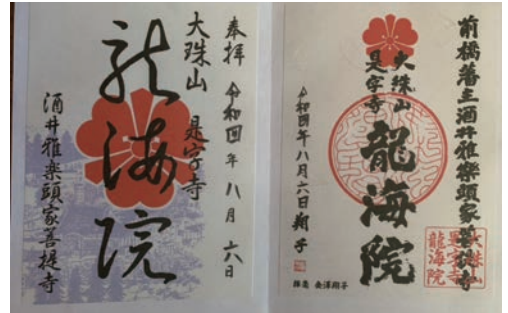 前橋藩主酒井雅楽頭家菩提寺
大珠山
是字寺
龍海院
令和四年八月六日 翔子
揮毫 金澤翔子
大珠山
是字寺
龍海院
奉拝 令和四年八月六日
大珠山 是字寺
龍海院
酒井雅楽頭家菩提寺